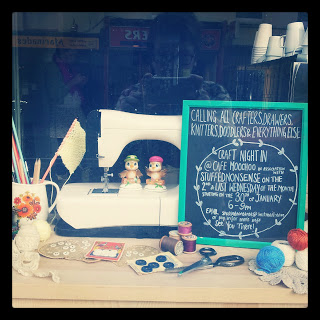 CALLING ALL CRAFTERS, DRAWERS,
KNITTERS, DOODLERS & EVERYTHING ELSE.
CRAFT NIGHT IN
@ CAFE MOOCHOO IN ASSOCIATION WITH
STUFFEDNONSENSE ON THE
2nd & LAST WEDNESDAY OF THE MONTH
STARTING ON THE 30TH OF
JANUARY
6-9PM
EMAIL
for more info
SEE YOU THERE!